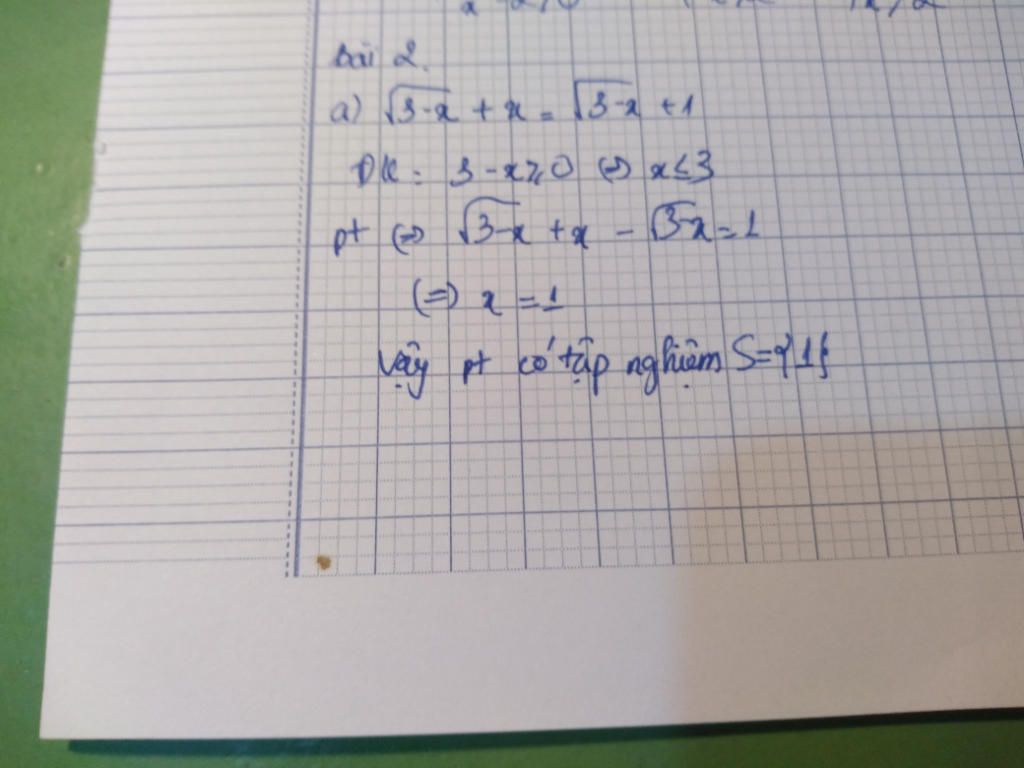 Bài 2.
a) √3-x + x = √3-x + 1
ĐK: 3 - x ≥ 0 (=) x ≤ 3
pt (=) √3-x + x - √3-x = 1
(=) x = 1
Vậy pt có tập nghiệm S = {1}